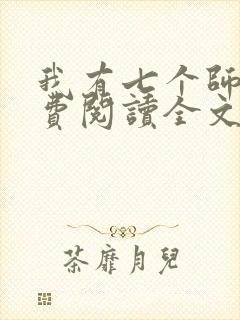 我有七个師
費閱讀全文
荼靡月兒